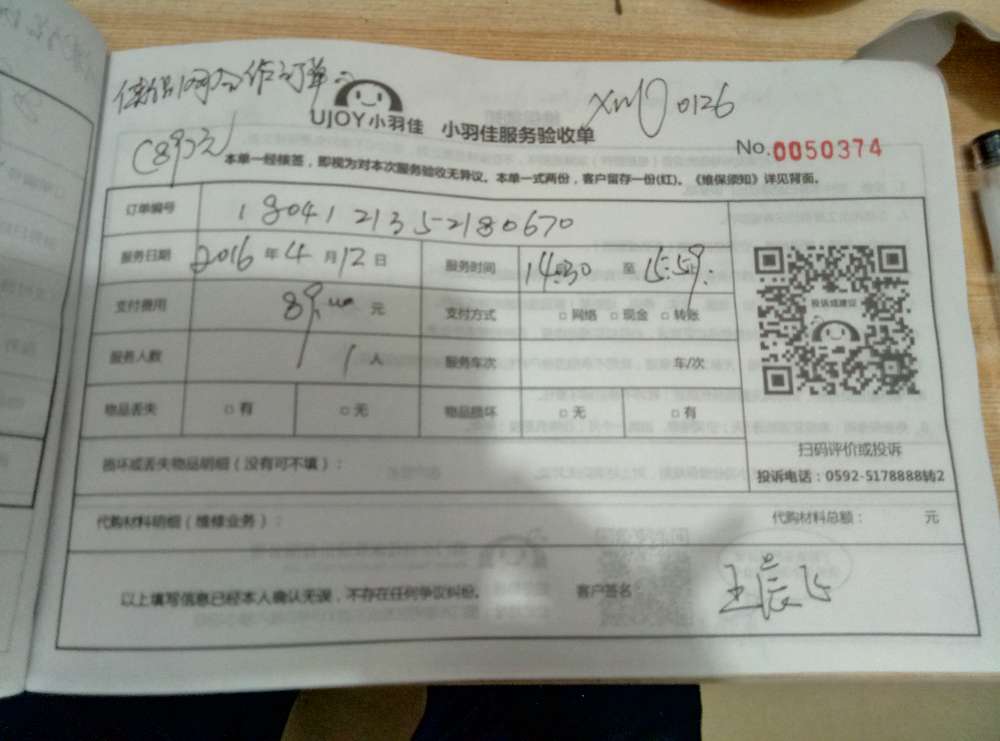 合作订单
XM 0126
(89元)
UJOY小羽佳 小羽佳服务验收单
No.0050374
本单一经核签，即视为对本次服务验收无异议。本单一式两份，客户留存一份(红)。《维保须知》详见背面。
订单编号 1804121352180670
服务日期 2016年4月12日 服务时间 14:30至15:59
支付费用 89 元 支付方式 □网络 □现金 □转账
投诉或建议
服务人数 1人 服务车次 车/次
物品丢失 □有 □无 物品损坏 □无 □有
扫码评价或投诉
损坏或丢失物品明细（没有可不填）：
投诉电话：0592-5178888转2
代购材料明细（维修业务）： 代购材料总额： 元
以上填写信息已经本人确认无误，不存在任何争议纠纷。 客户签名： 王晨飞